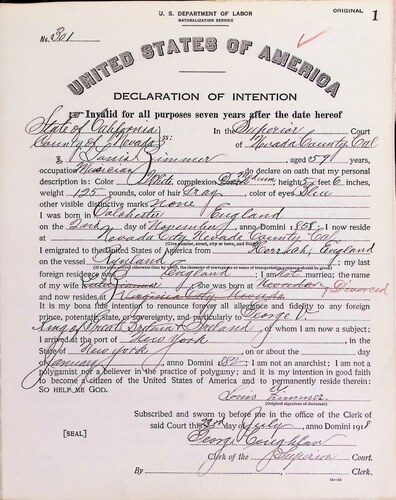 U. S. DEPARTMENT OF LABOR
NATURALIZATION SERVICE
ORIGINAL 1
No. 301
UNITED STATES OF AMERICA
DECLARATION OF INTENTION
Invalid for all purposes seven years after the date hereof
State of California
In the Superior Court
County of Nevada ss: of Nevada County, Cal
I, Louis Zimmer, aged 57 years,
occupation Musician, do declare on oath that my personal
description is: Color White, complexion, height 5 feet 6 inches,
weight 125 pounds, color of hair Gray, color of eyes Blue
other visible distinctive marks None
I was born in Colchester England
on the day of November, anno Domini; I now reside
at Nevada City, Nevada County, Cal.
(Give number, street, city or town, and State)
I emigrated to the United States of America from England
on the vessel; my last
(If the alien arrived otherwise than by vessel, the character of conveyance or name of transportation company should be given)
foreign residence was England; I am not married; the name
of my wife; she was born at Nevada Divorced
and now resides at Virginia City Nevada
It is my bona fide intention to renounce forever all allegiance and fidelity to any foreign
prince, potentate, state, or sovereignty, and particularly to George V
King of Great Britain & Ireland, of whom I am now a subject;
I arrived at the port of New York, in the
State of New York, on or about the day
of January, anno Domini; I am not an anarchist; I am not a
polygamist nor a believer in the practice of polygamy; and it is my intention in good faith
to become a citizen of the United States of America and to permanently reside therein:
SO HELP ME GOD.
Louis Zimmer
(Original signature of declarant)
Subscribed and sworn to before me in the office of the Clerk of
said Court this day of July, anno Domini 1918
[SEAL]
George Coughlan
Clerk of the Superior Court.
By, Clerk.